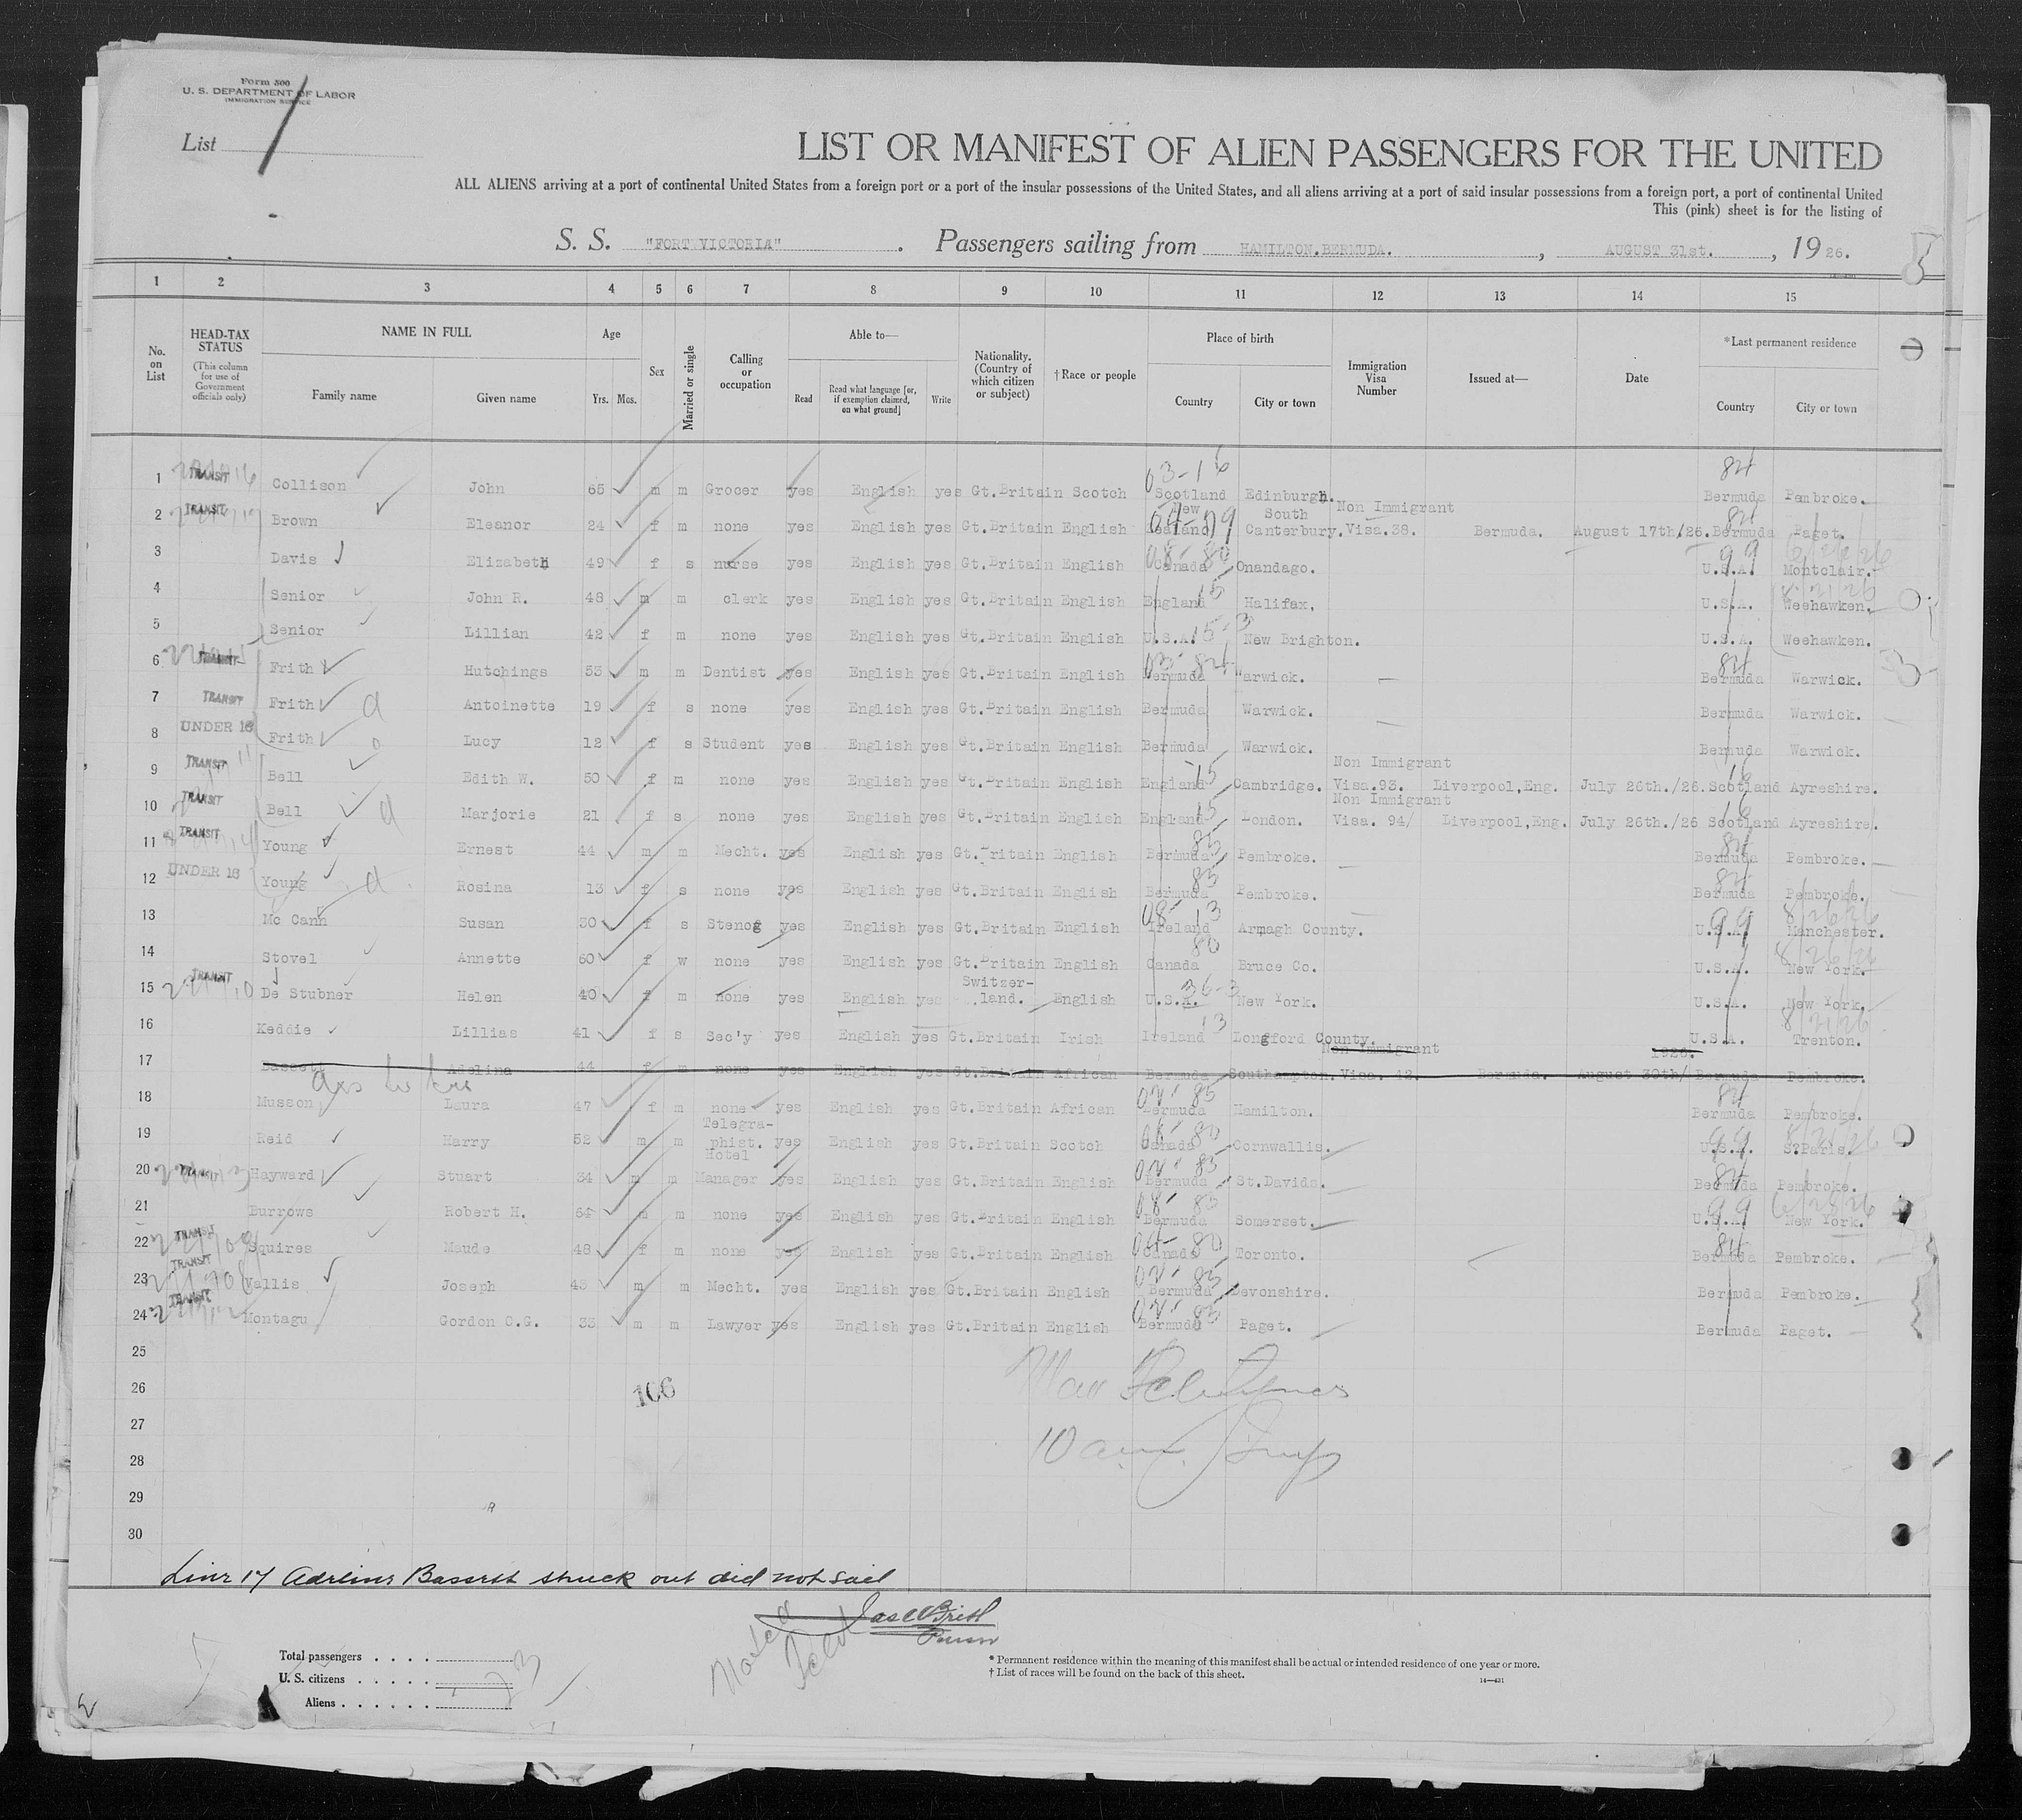 Form 500
U. S. DEPARTMENT OF LABOR
IMMIGRATION SERVICE
List 1
LIST OR MANIFEST OF ALIEN PASSENGERS FOR THE UNITED
ALL ALIENS arriving at a port of continental United States from a foreign port or a port of the insular possessions of the United States, and all aliens arriving at a port of said insular possessions from a foreign port, a port of continental United
This (pink) sheet is for the listing of
S. S. "FORT VICTORIA". Passengers sailing from HAMILTON.BERMUDA. , AUGUST 31st. , 1926.
1 2 3 4 5 6 7 8 9 10 11 12 13 14 15
No. on List
HEAD-TAX STATUS (This column for use of Government officials only)
NAME IN FULL
Family name Given name
Age
Yrs. Mos.
Sex
Married or single
Calling or occupation
Able to—
Read Read what language [or, if exemption claimed, on what ground] Write
Nationality. (Country of which citizen or subject)
† Race or people
Place of birth
Country City or town
Immigration Visa Number
Issued at—
Date
*Last permanent residence
Country City or town
1 TRANSIT Collison John 65 m m Grocer yes English yes Gt.Britain Scotch Scotland Edinburgh. Bermuda Pembroke.
2 TRANSIT Brown Eleanor 24 f m none yes English yes Gt.Britain English New Zealand South Canterbury. Non Immigrant Visa.38. Bermuda. August 17th/26. Bermuda Paget.
3 Davis Elizabeth 49 f s nurse yes English yes Gt.Britain English Canada Onandago. U.S.A. Montclair.
4 Senior John R. 48 m m clerk yes English yes Gt.Britain English England Halifax. U.S.A. Weehawken.
5 Senior Lillian 42 f m none yes English yes Gt.Britain English U.S.A. New Brighton. U.S.A. Weehawken.
6 TRANSIT Frith Hutchings 53 m m Dentist yes English yes Gt.Britain English Bermuda Warwick. Bermuda Warwick.
7 TRANSIT Frith Antoinette 19 f s none yes English yes Gt.Britain English Bermuda Warwick. Bermuda Warwick.
8 UNDER 16 Frith Lucy 12 f s Student yes English yes Gt.Britain English Bermuda Warwick. Bermuda Warwick.
9 TRANSIT Bell Edith W. 50 f m none yes English yes Gt.Britain English England Cambridge. Non Immigrant Visa.93. Liverpool,Eng. July 26th./26. Scotland Ayreshire.
10 TRANSIT Bell Marjorie 21 f s none yes English yes Gt.Britain English England London. Non Immigrant Visa. 94/ Liverpool,Eng. July 26th./26 Scotland Ayreshire.
11 TRANSIT Young Ernest 44 m m Mecht. yes English yes Gt.Britain English Bermuda Pembroke. Bermuda Pembroke.
12 UNDER 16 Young Rosina 13 f s none yes English yes Gt.Britain English Bermuda Pembroke. Bermuda Pembroke.
13 Mc Cann Susan 30 f s Stenog yes English yes Gt.Britain English Ireland Armagh County. U.S.A. Manchester.
14 Stovel Annette 60 f w none yes English yes Gt.Britain English Canada Bruce Co. U.S.A. New York.
15 TRANSIT De Stubner Helen 40 f m none yes English yes Switzer-land. English U.S.A. New York. U.S.A. New York.
16 Keddie Lillias 41 f s Sec'y yes English yes Gt.Britain Irish Ireland Longford County. U.S.A. Trenton.
17 Bassett Adelina 44 f m none yes English yes Gt.Britain African Bermuda Southampton. Non Immigrant Visa. 42. Bermuda. August 30th/ 1926. Bermuda Pembroke.
18 Musson Laura 47 f m none yes English yes Gt.Britain African Bermuda Hamilton. Bermuda Pembroke.
19 Reid Harry 52 m m Telegra-phist. yes English yes Gt.Britain Scotch Canada Cornwallis. U.S.A. S.Paris.
20 TRANSIT Hayward Stuart 34 m m Hotel Manager yes English yes Gt.Britain English Bermuda St.Davids. Bermuda Pembroke.
21 Burrows Robert H. 64 m m none yes English yes Gt.Britain English Bermuda Somerset. U.S.A. New York.
22 TRANSIT Squires Maude 48 f m none yes English yes Gt.Britain English Canada Toronto. Bermuda Pembroke.
23 TRANSIT Vallis Joseph 43 m m Mecht. yes English yes Gt.Britain English Bermuda Devonshire. Bermuda Pembroke.
24 TRANSIT Montagu Gordon C.G. 33 m m Lawyer yes English yes Gt.Britain English Bermuda Paget. Bermuda Paget.
25
26 106
27
28
29
30
Line 17 Adeline Bassett struck out did not sail
Purser
Total passengers
U. S. citizens
Aliens 23
* Permanent residence within the meaning of this manifest shall be actual or intended residence of one year or more.
† List of races will be found on the back of this sheet.
14—431